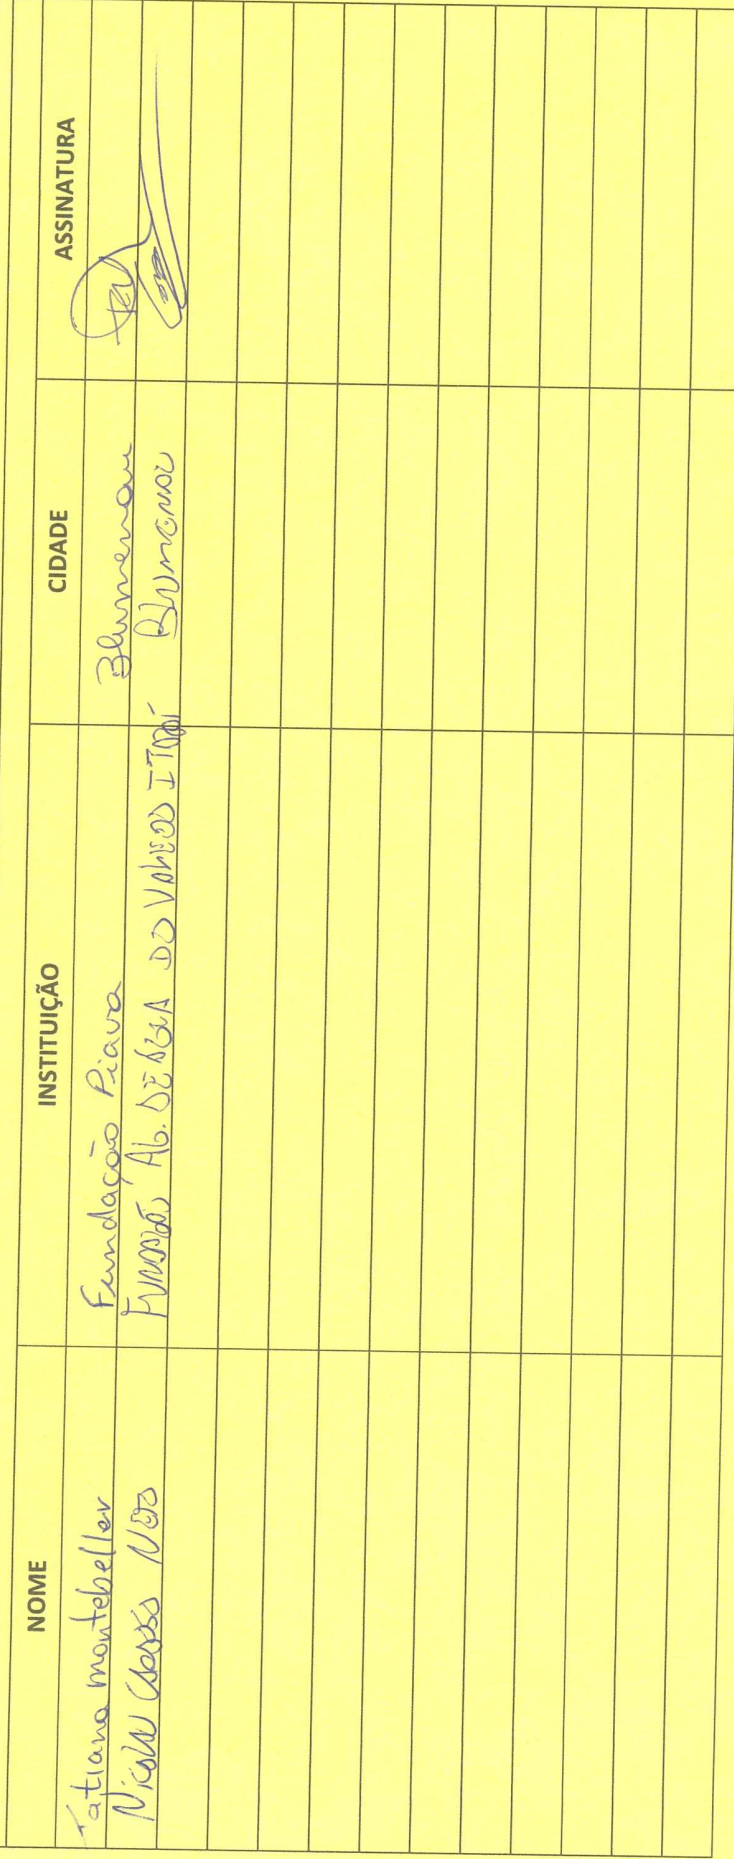 NOME INSTITUIÇÃO CIDADE ASSINATURA
Tatiana montebeller Fundação Piava Blumenau
Nicolau Neto Ab. DE ÁGUA DO VALE DO ITAJAÍ Blumenau